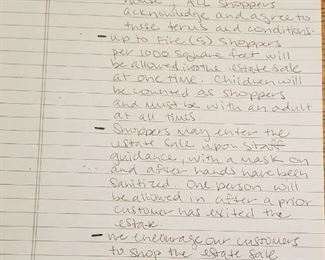 house, All shoppers
acknowledge and agree to
these terms and conditions.
- up to Five (5) shoppers
per 1000 square feet will
be allowed into the estate sale
at one time. Children will
be counted as shoppers
and must be with an adult
at all times.
- Shoppers may enter the
estate sale upon staff
guidance, with a mask on
and after hands have been
sanitized. One person will
be allowed in after a prior
customer has exited the
estate.
- we encourage our customers
to shop the estate sale